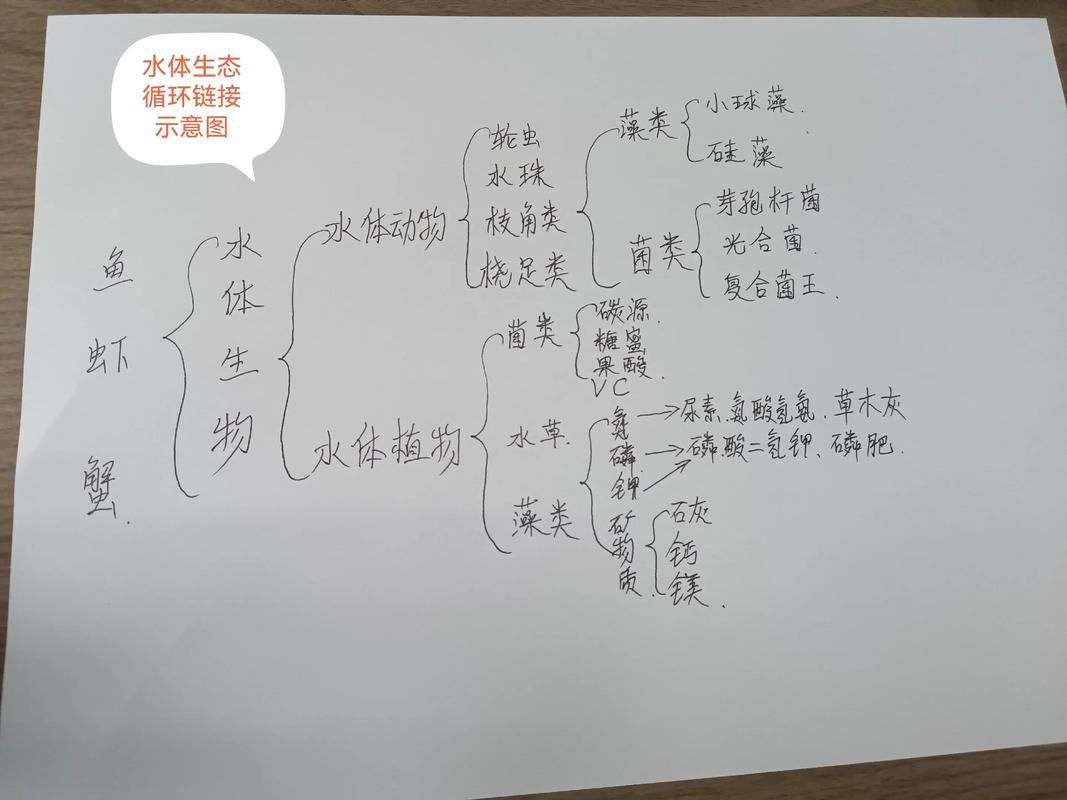 水体生态
循环链接
示意图
鱼
虾
蟹.
水体生物
水体动物
轮虫
水珠
枝角类
桡足类
藻类
小球藻.
硅藻
菌类
芽孢杆菌
光合菌.
复合菌王.
水体植物
菌类
碳源.
糖蜜
果酸.
VC
水草.
藻类
氮→尿素.氨酸氢氨.草木灰
磷→磷酸二氢钾、磷肥.
钾
矿物质.
石灰
钙
镁.